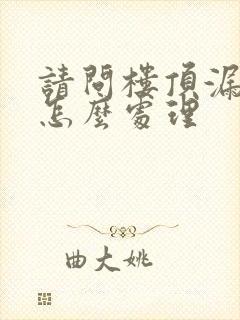 請問樓頂漏
怎麼處理
曲大姚